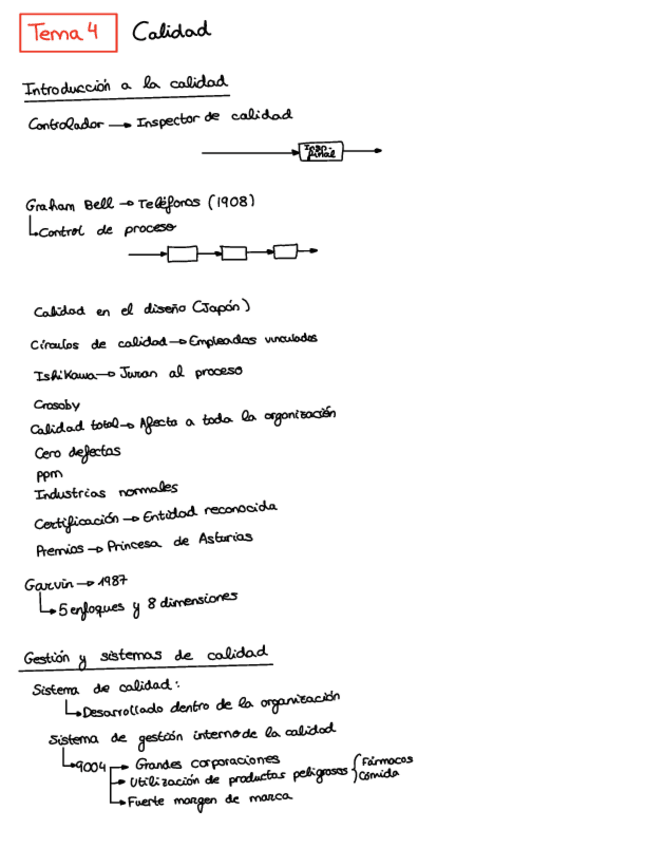 Tema 4 Calidad
Introducción a la calidad
Controlador → Inspector de calidad
Insp. final
Graham Bell → Teléfonos (1908)
Control de proceso
Calidad en el diseño (Japón)
Círculos de calidad → Empleados vinculados
Ishikawa → Juran al proceso
Crosoby
Calidad total → Afecta a toda la organización
Cero defectos
ppm
Industrias normales
Certificación → Entidad reconocida
Premios → Princesa de Asturias
Garvin → 1987
5 enfoques y 8 dimensiones
Gestión y sistemas de calidad
Sistema de calidad:
Desarrollado dentro de la organización
Sistema de gestión interno de la calidad
9004 → Grandes corporaciones
Utilización de productos peligrosos { Fármacos
Comida
Fuerte margen de marca